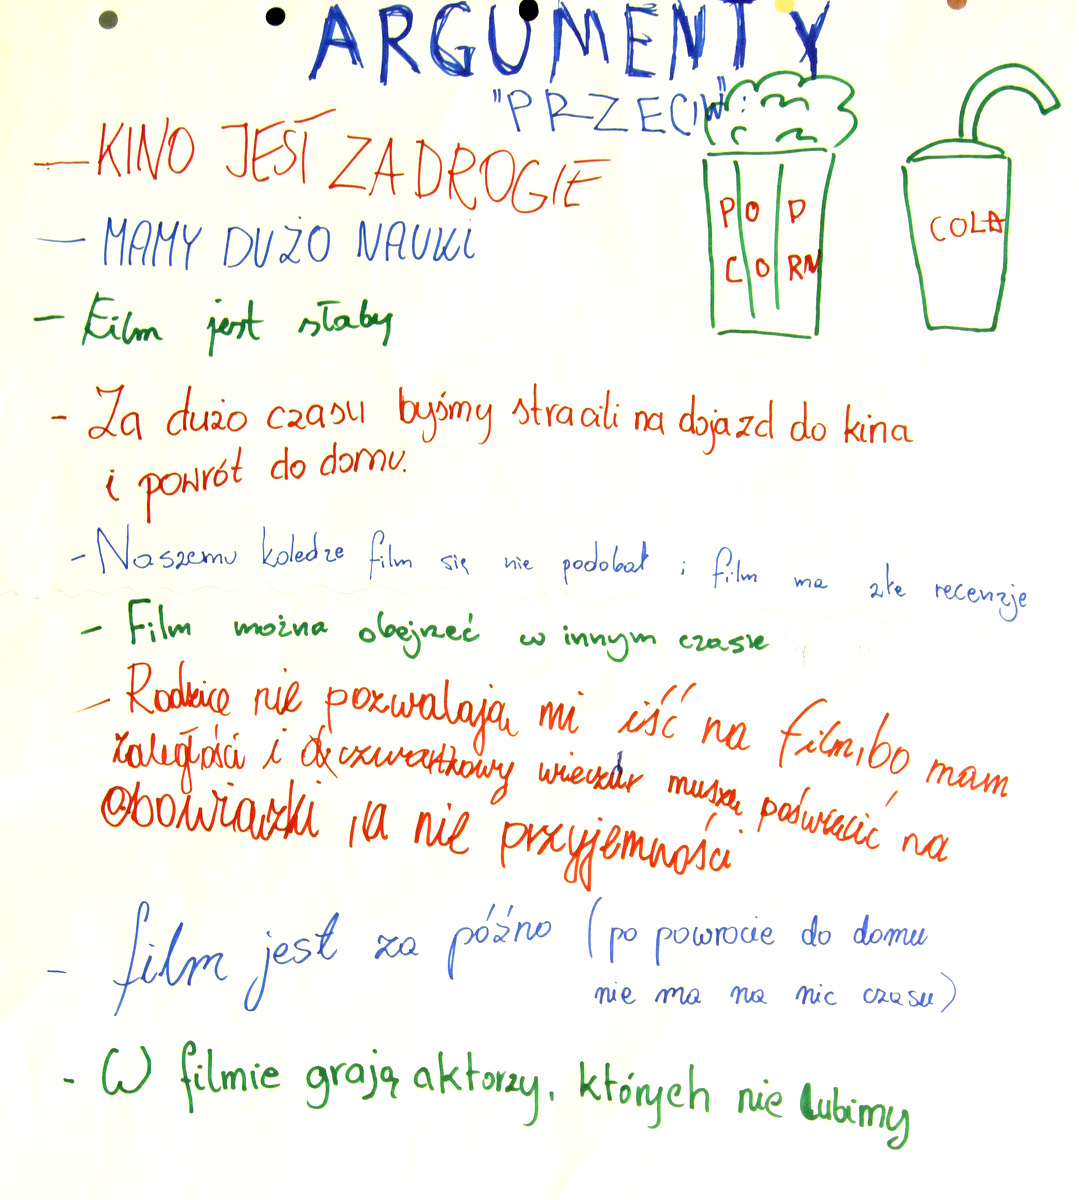 ARGUMENTY
"PRZECIW":
- KINO JEST ZA DROGIE
- MAMY DUŻO NAUKI
- Film jest słaby
- Za dużo czasu byśmy stracili na dojazd do kina
i powrót do domu.
- Naszemu koledze film się nie podobał i film ma złe recenzje
- Film można obejrzeć w innym czasie
- Rodzice nie pozwalają mi iść na film, bo mam
zaległości i czwartkowy wieczór muszę poświęcić na
obowiązki, a nie przyjemności
- film jest za późno (po powrocie do domu
nie ma na nic czasu)
- W filmie grają aktorzy, których nie lubimy
POP
CORN
COLA